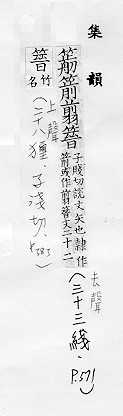 集韻
箭剪
子賤切說文矢也隸作
箭或作剪晉文三十二
(去聲
三十三綫.
P.571)
竹
名
(上聲
二十八獮.子淺切.
P.383)